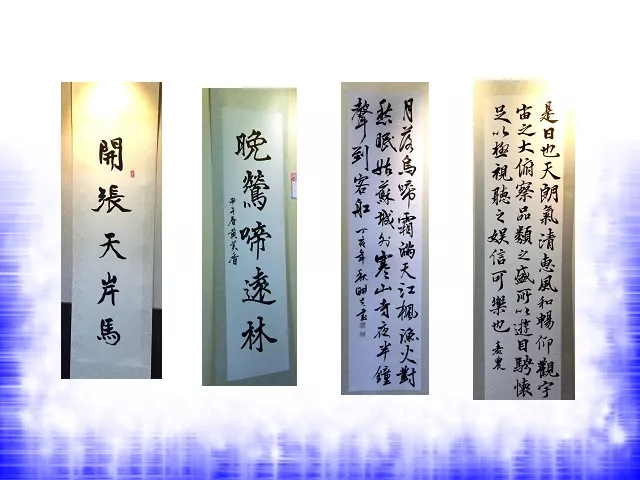 開張天岸馬
晚鶯啼遠林
甲午春黃
月落烏啼霜滿天江楓漁火對
愁眠姑蘇城外寒山寺夜半鐘
聲到客船
丁亥年秋
是日也天朗氣清惠風和暢仰觀宇
宙之大俯察品類之盛所以遊目騁懷
足以極視聽之娛信可樂也